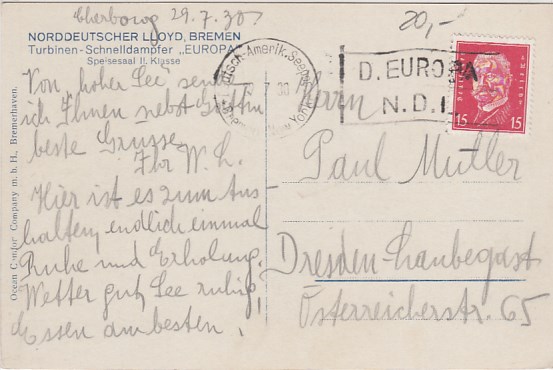 Cherbourg 29.7.30
20,-
NORDDEUTSCHER LLOYD, BREMEN
Turbinen-Schnelldampfer „EUROPA“
Speisesaal II. Klasse
Von hoher See sende
ich Ihnen nebst Gattin
beste Grüsse
Ihr W. L.
Hier ist es zum Aus-
halten, endlich einmal
Ruhe und Erholung.
Wetter gut, See ruhig,
Essen am besten!
Ocean Comfor Company m. b. H., Bremerhaven.
Deutsch-Amerik. Seepost
30
York
D. EUROPA
N.D.L
15 15
Herrn
Paul Müller
Dresden-Laubegast
Österreicherstr. 65